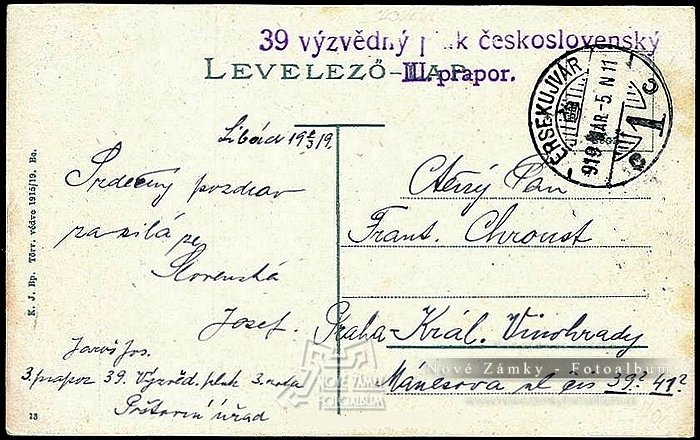 39 výzvědný pluk československý
III. prapor.
LEVELEZŐ-LAP
ÉRSEKUJVÁR
919 MAR.-5. N11
1
Libád 19 2/3 19.
Srdečný pozdrav
zasílá ze
Slovenska
Josef.
Jaroš Jos.
3. prapor 39. Výzvěd. pluk 3. rota
Poštovní úřad
Ctěný Pan
Frant. Chroust
Praha-Král. Vinohrady
Mánesova ul čís 39? 41?
K. J. Bp. Törv. védve 1915/19. Bo.
18
Nové Zámky - Fotoalbum
NOVÉ ZÁMKY
FOTOALBUM